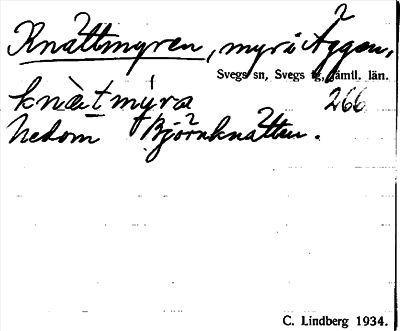 Knåttmyren, myr i Åggen,
Svegs sn, Svegs tg, Jämtl. län.
knàt myra 266
nedom Björnknåtten.
C. Lindberg 1934.